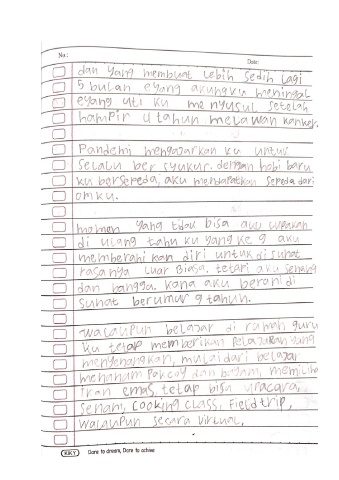 No.:
Date:
dan yang membuat lebih sedih lagi
5 bulan eyang akungku meninggal
eyang uti ku menyusul setelah
hampir 4 tahun melawan kanker.
Pandemi mengajarkan ku untuk
selalu ber syukur. dengan hobi baru
ku bersepeda, aku mendapatkan sepeda dari
omku.
momen yang tidak bisa aku lupakan
di ulang tahun ku yang ke 9 aku
memberahi kan diri untuk di suhat
rasanya luar Biasa, tetapi aku senang
dan bangga. kana aku berani di
suhat berumur 9 tahun.
walaupun belajar di rumah guru
ku tetap memberikan pelajaran yang
menyenangkan, mulai dari belajar
menanam pakcoy dan bayam, memelihara
ikan emas, tetap bisa upacara,
senam, cooking class, Field trip,
walaupun secara virtual.
KIKY Dare to dream, Dare to achieve